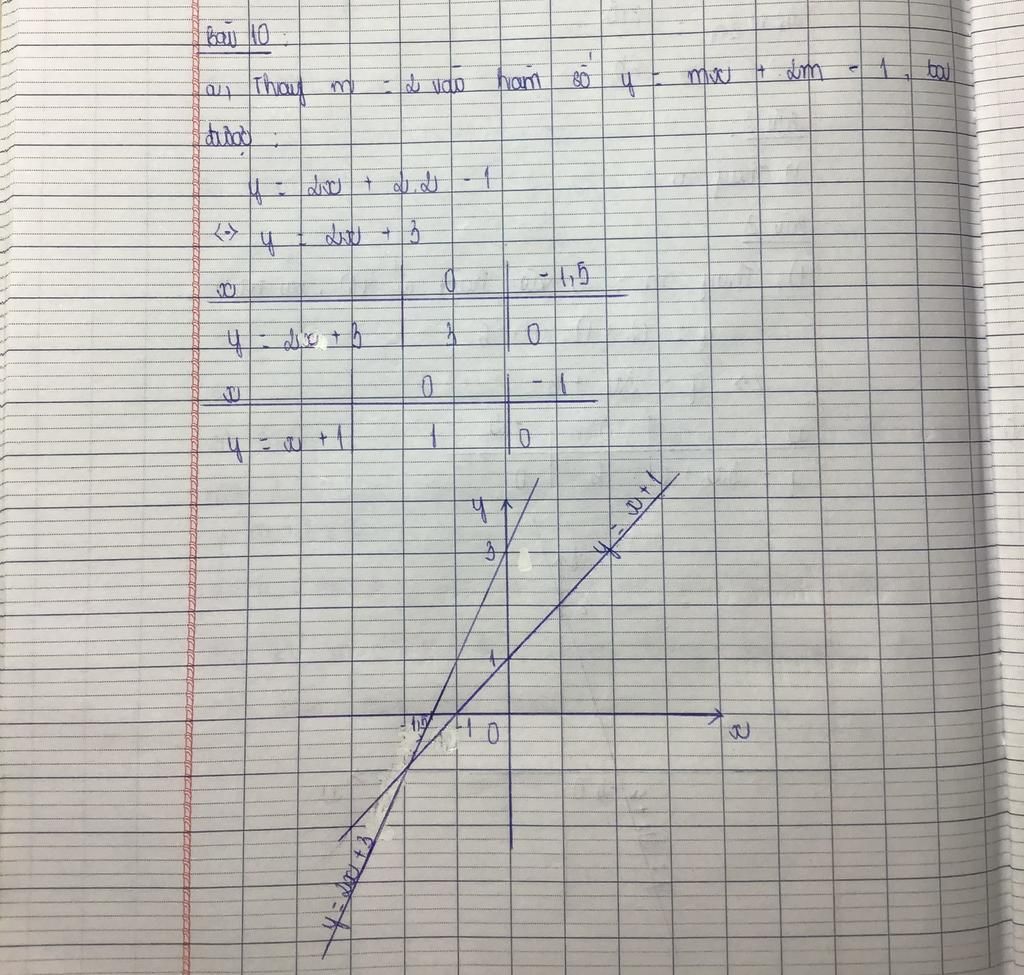 Bài 10 :
a, Thay m = 2 vào hàm số y = mx + 2m - 1, ta
được :
y = 2x + 2.2 - 1
<=> y = 2x + 3
x 0 -1,5
y = 2x + 3 3 0
x 0 -1
y = x + 1 1 0
y
y = x + 1
3
1
-1,5 -1 0 x
y = 2x + 3